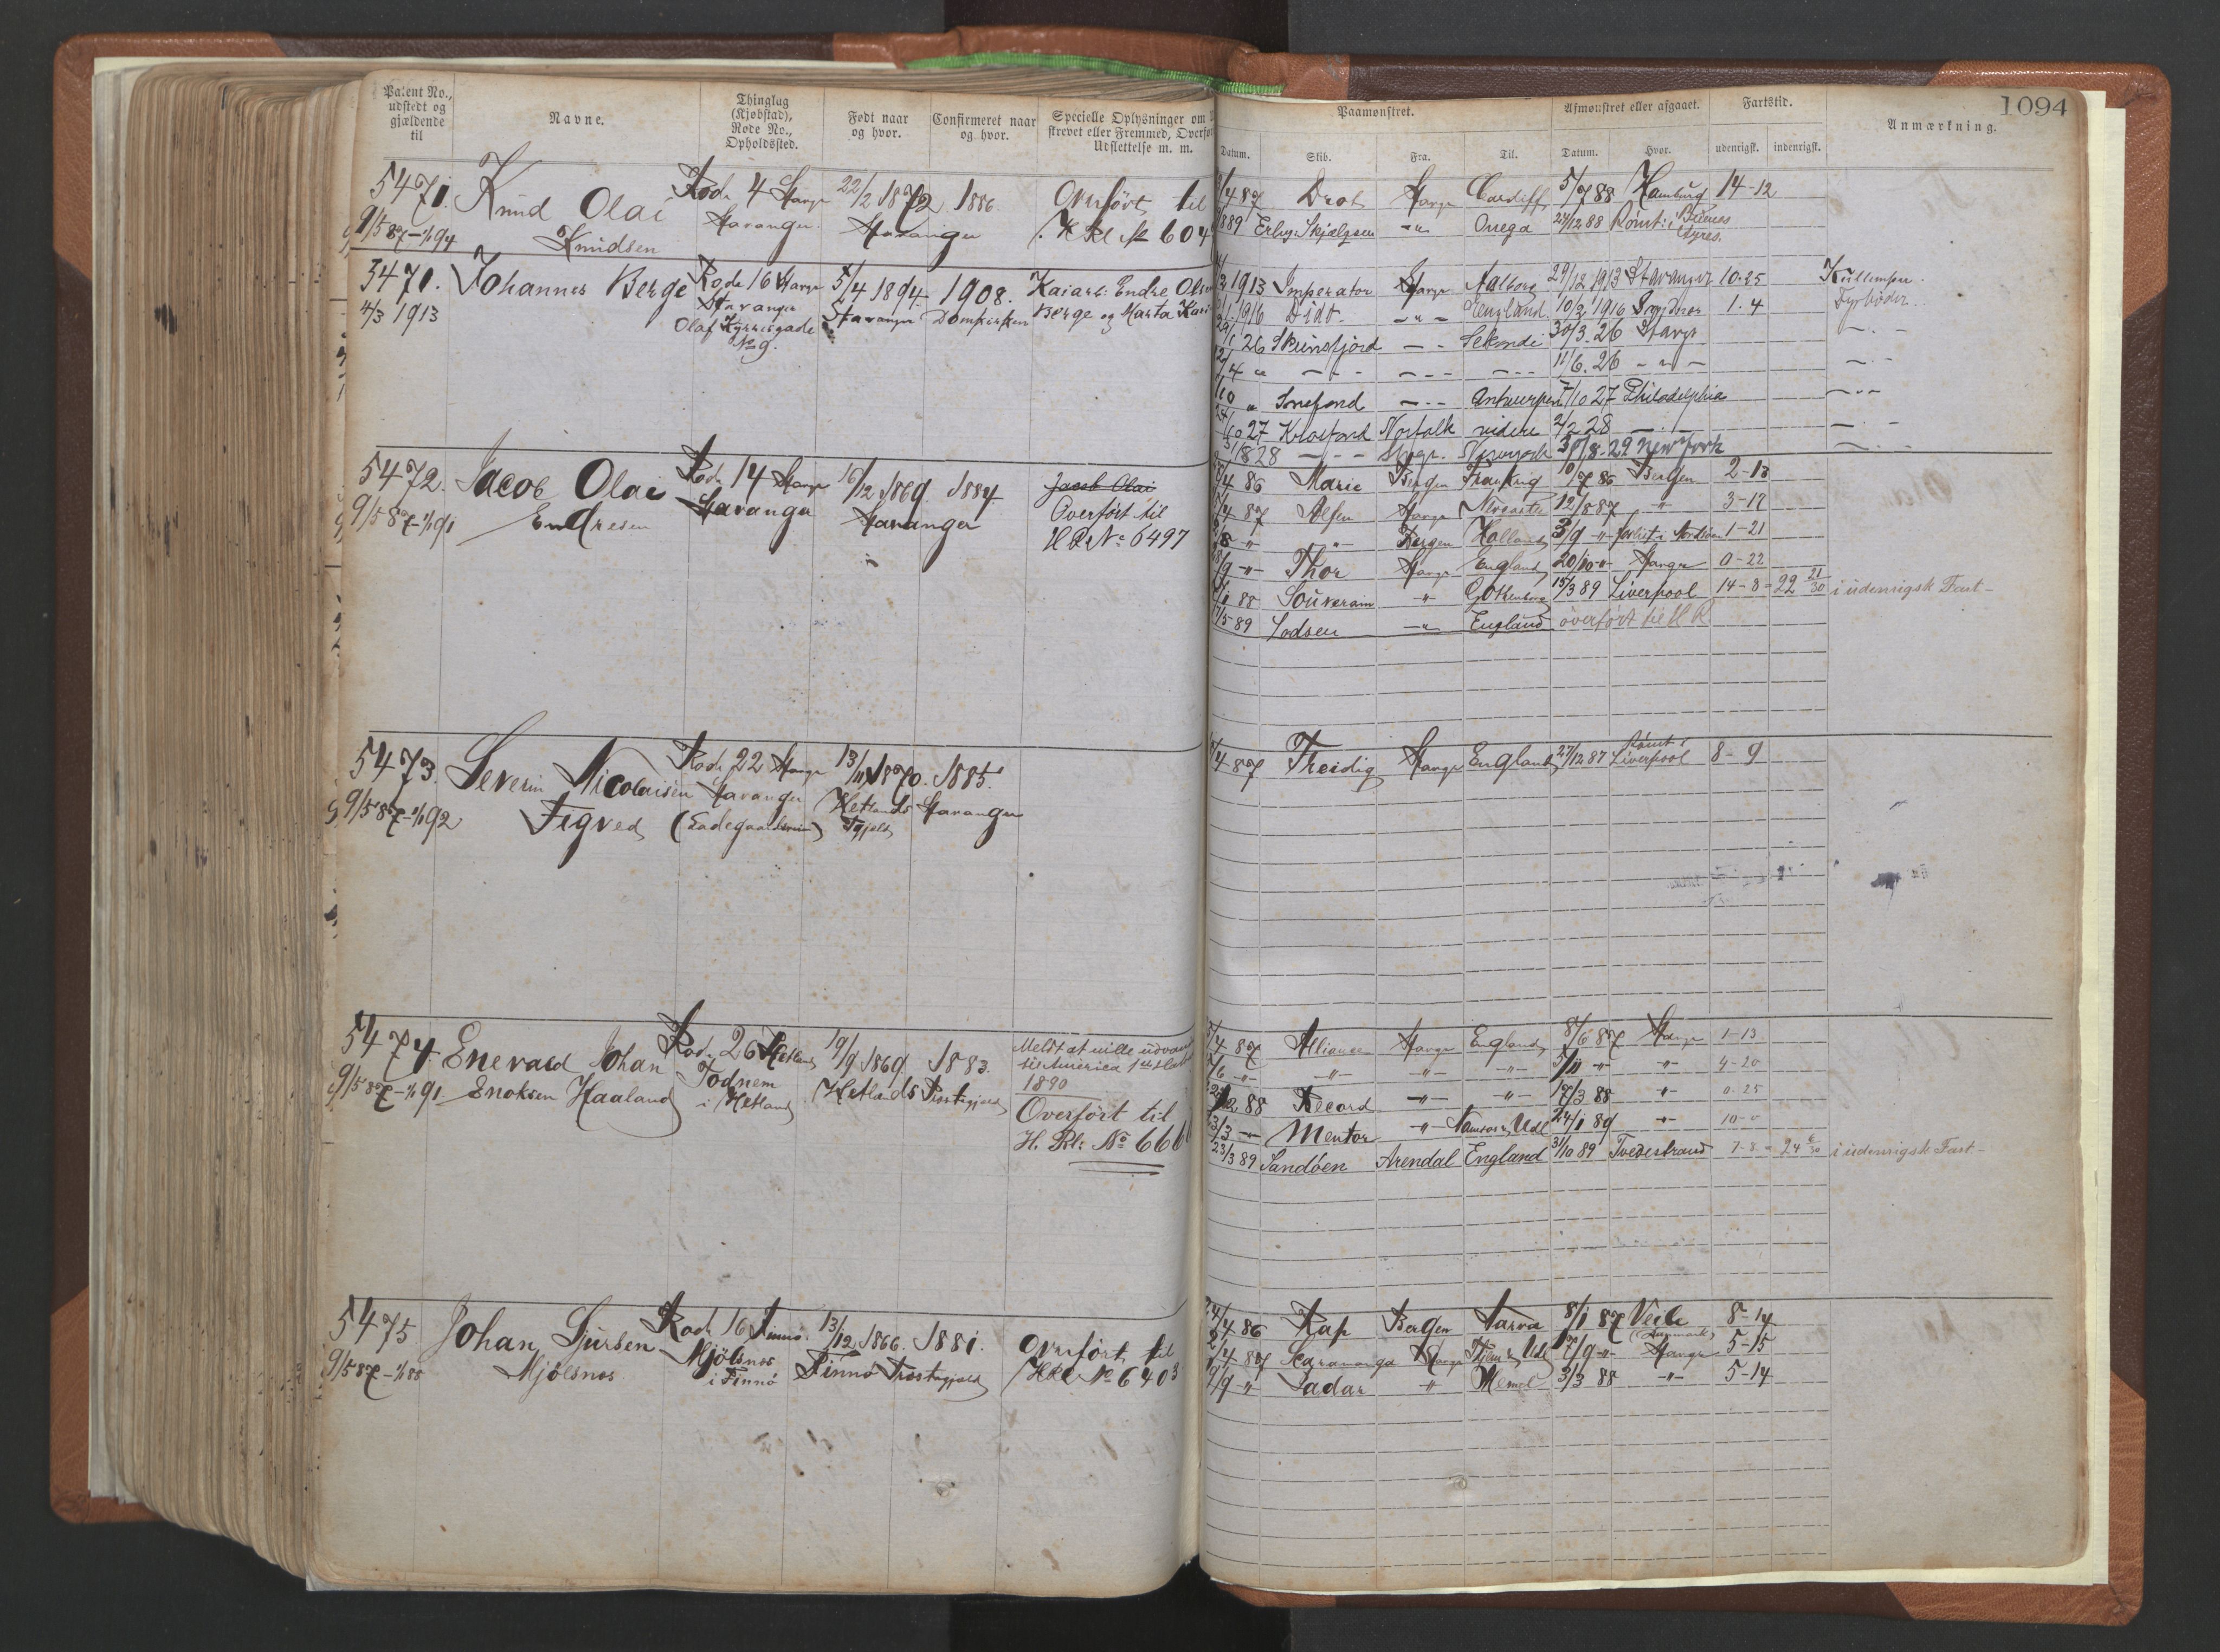 1094
Patent No., udstedt og gjældende til
Navne.
Thinglag (Kjøbstad), Rode No., Opholdssted.
Født naar og hvor.
Confirmeret naar og hvor.
Specielle Oplysninger om
strevet eller Fremmed, Overfør
Udslettelse m. m.
Paamønstret.
Afmønstret eller afgaaet.
Fartstid.
Anmærkning.
Datum. Skib. Fra. Til. Datum. Hvor. udenrigsk. indenrigsk.
5471. Knud Olai Rode 4 Stavgr 22/2 1872 1886 Overført til
9/5 87 - 1/1 94 Knudsen Stavanger. Stavanger H Rl № 604
4 87 Drot Stavgr Cardiff 5/7 88 Hamburg 14-12
889 Erling Skjalgsen -"- Onega 24/12 88 Rømt i Buenos Ayres.
5471. Johannes Berge Rode 16 Stavgr 5/4 1894 1908. Kaiarb: Endre Olsen
4/3 1913 Stavanger Stavanger Domkirken Berge og Marta Kari
Olaf Kyrresgade
№ 9.
3 1913 Imperator Stavgr Aalborg 29/12 1913 Stavanger 10-25 Kullemper
1916 Dido -"- England 10/2 1916 1-4 Fyrbøder
26 - - 30/3 26 Stavgr - " -
4 " - - - - - - - - - 11/6. 26 - " - - " -
10 " Snefond - - - Antwerpen 7/10 27 Philadelphia - " -
10 27 Norfolk videre 2/2 28 - " - - " -
8 28 - - - Stvgr. Newyork 30/8-29 New York - " -
5472. Jacob Olai Rode 14 Stavgr 16/12 1869. 1884 Jacob Olai
9/5 87 - 1/1 91 Endresen Stavanger Stavanger Overført til
H Rl № 6497
4 86 Marie Bergen 10/7 86 Bergen 2-13
4 87 Alfen Stavgr Newcastle 12/8 87 " 3-17
8 " " Bergen Holland 3/9 " forlist i Nordsøen 1-21
9 " Thor Stavgr England 20/10 " Stavgr 0-22
1 88 Souverain " Gothenborg 15/3 89 Liverpool 14-8 = 22 21/30 i udenrigsk Fart -
5 89 Lodsen " England overført til H R
5473. Severin Nicolaisen Rode 22 Stavgr 13/11 1870. 1885.
9/5 87 - 1/1 92 Tegved Stavanger Hetlands Stavanger
(Ladegaardsveien) Pgjeld
4 87 Freidig Stavgr England 27/12 87 Rømt i Liverpool 8-9
5474 Enevald Johan Rode 26 Hetland 19/9 1869 1883. Meldt at ville udvandre
9/5 87 - 1/1 91 Enoksen Haaland Todnem Hetlands Præstegjeld til America
i Hetland 1890
Overført til
H. Rl. № 666
4 87 Alliance Stavgr England 8/6 87 Stavgr 1-13
6 " " " " 5/11 " " 4-20
2 88 Record " " 17/3 88 " 0-25
3/3 " Mentor " Namsos, Udl 24/1 89 " 10-0
23/3 89 Sandøen Arendal England 31/10 89 Tvedestrand 7-8 = 24 6/30 i udenrigsk Fart -
5475 Johan Sjursen Rode 16 Finnø. 13/12 1866. 1881. Overført til
9/5 87 - 1/1 88 Mjølsnes Mjølsnes i Finnø Finnø Præstegjeld H Rl № 6403
4 86 Rap Bergen Narva 8/1 87 Veile (Danmark) 8-14
4 87 Stavgr Udl 17/9 " Stavgr 5-15
9 " Ladar " Memel 3/3 88 " 5-14